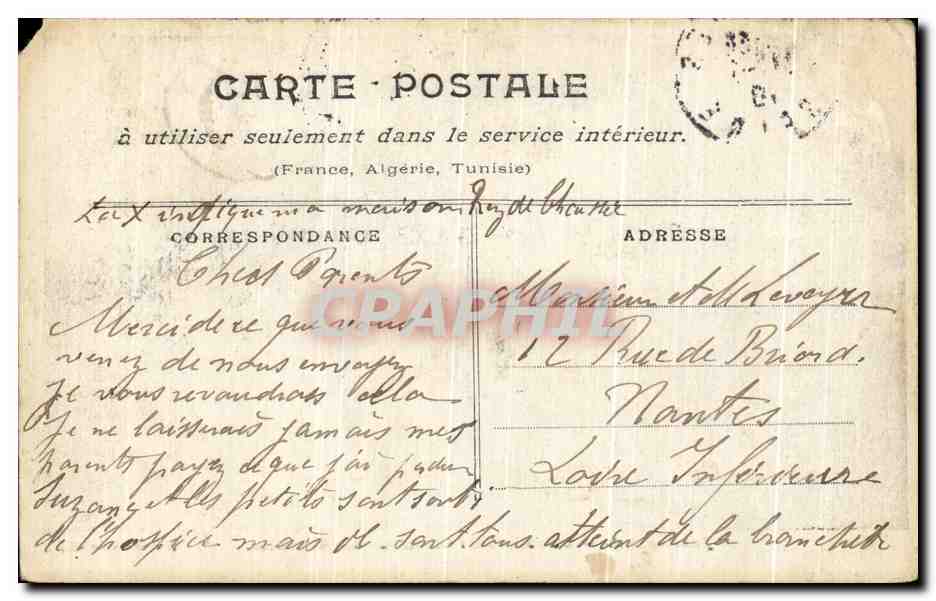 CARTE POSTALE
à utiliser seulement dans le service intérieur.
(France, Algérie, Tunisie)
La X indique ma maison Rez de Chaussée
CORRESPONDANCE
Chers Parents
Merci de ce que vous
venez de nous envoyez
Je vous revaudrais cela
Je ne laisserais jamais mes
parents payez ce que j'ai perdu
Suzanne et les petits sont sortis
de l'hospice mais il sont tous atteint de la
ADRESSE
Monsieur et M
12 Rue de Briord.
Nantes
Loire Inférieure
CPARPHIL